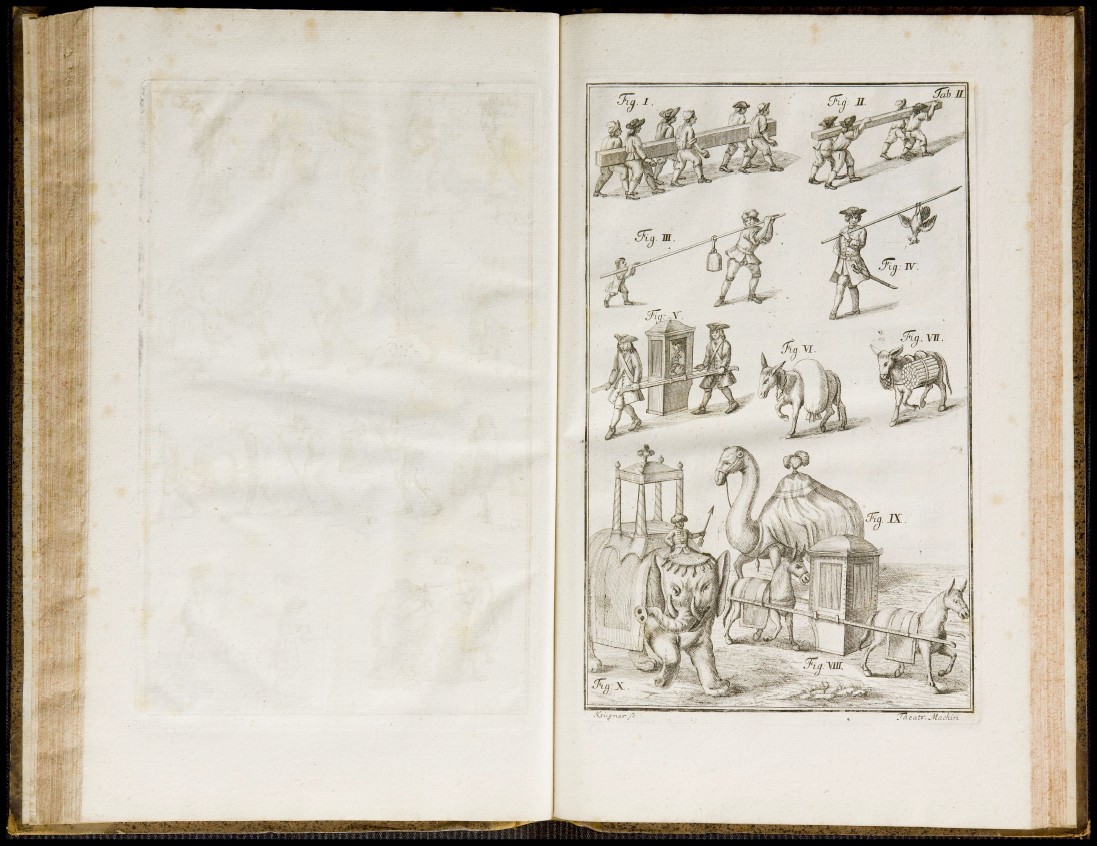 Fig. I.
Fig. II.
Tab II.
Fig. III.
Fig. IV.
Fig. V.
Fig. VI.
Fig. VII.
Fig. IX.
Fig. VIII.
Fig. X.
Theatr. Machin